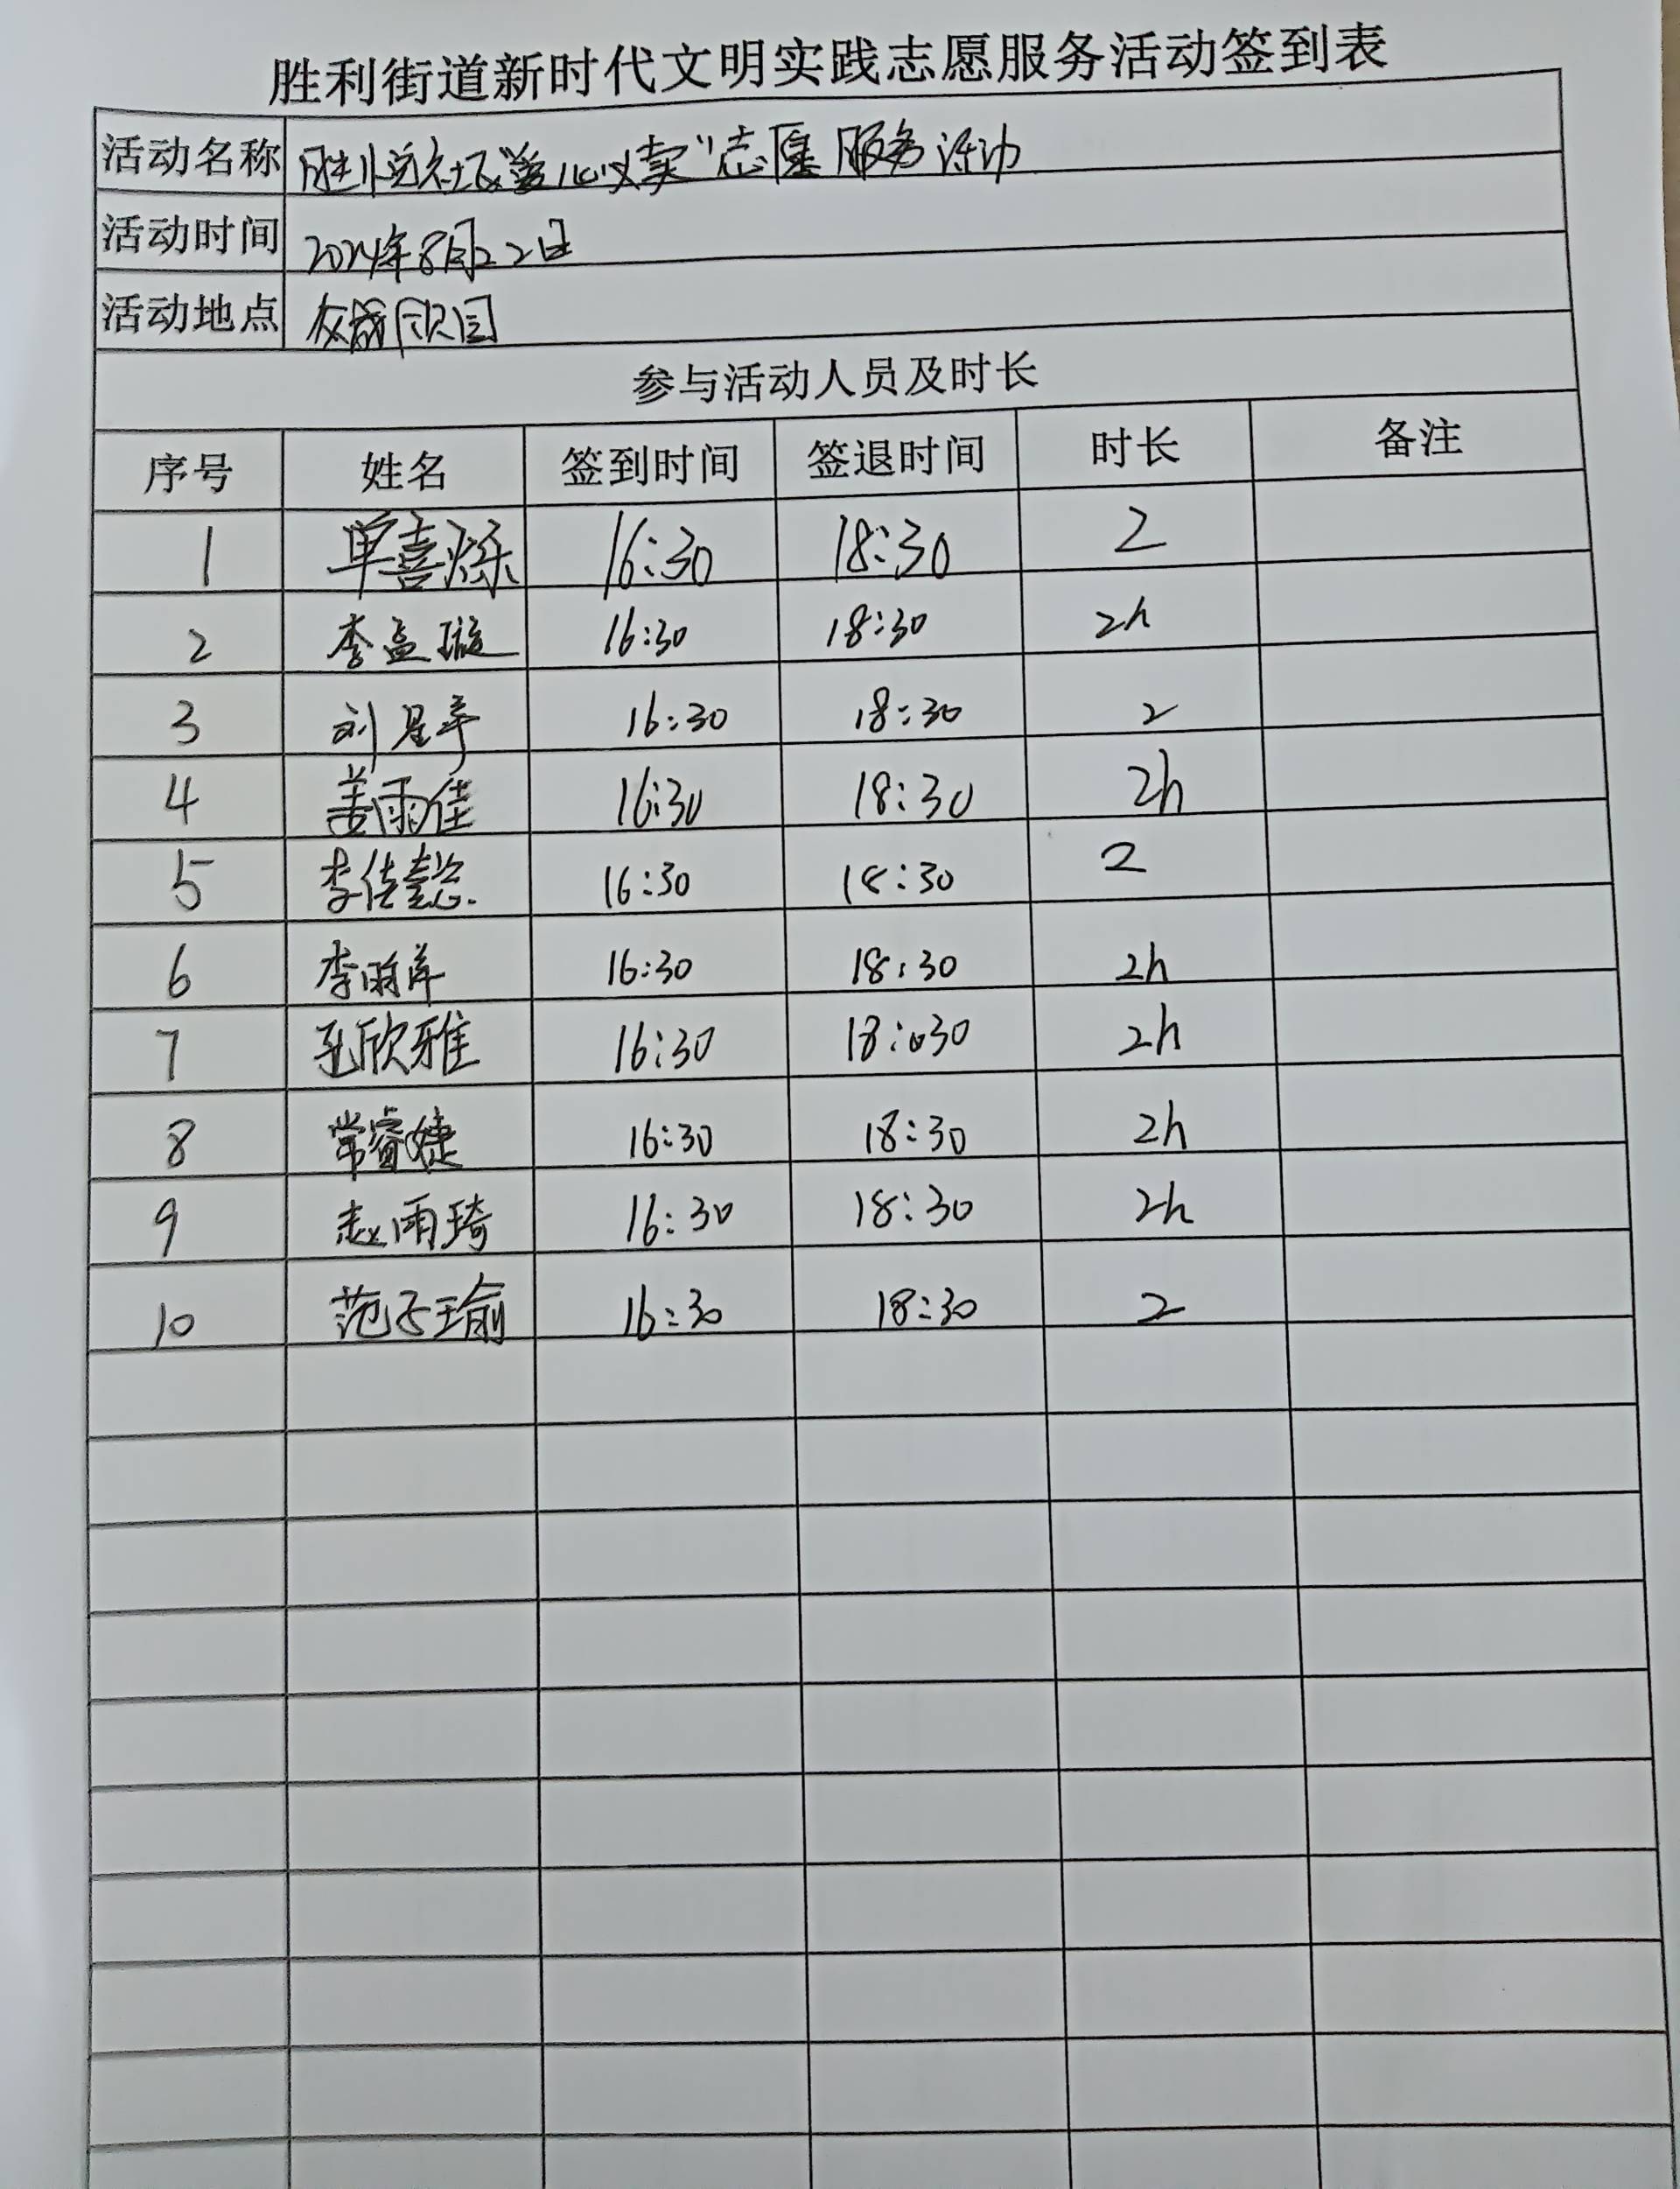 胜利街道新时代文明实践志愿服务活动签到表
活动名称 胜小总社区"爱心义卖"志愿服务活动
活动时间 2024年8月22日
活动地点
参与活动人员及时长
序号 姓名 签到时间 签退时间 时长 备注
1 单喜烁 16:30 18:30 2
2 李孟璇 16:30 18:30 2h
3 刘星宇 16:30 18:30 2
4 姜雨佳 16:30 18:30 2h
5 李佳懿 16:30 18:30 2
6 李 16:30 18:30 2h
7 欣雅 16:30 18:30 2h
8 常睿婕 16:30 18:30 2h
9 赵雨琦 16:30 18:30 2h
10 范子瑜 16:30 18:30 2